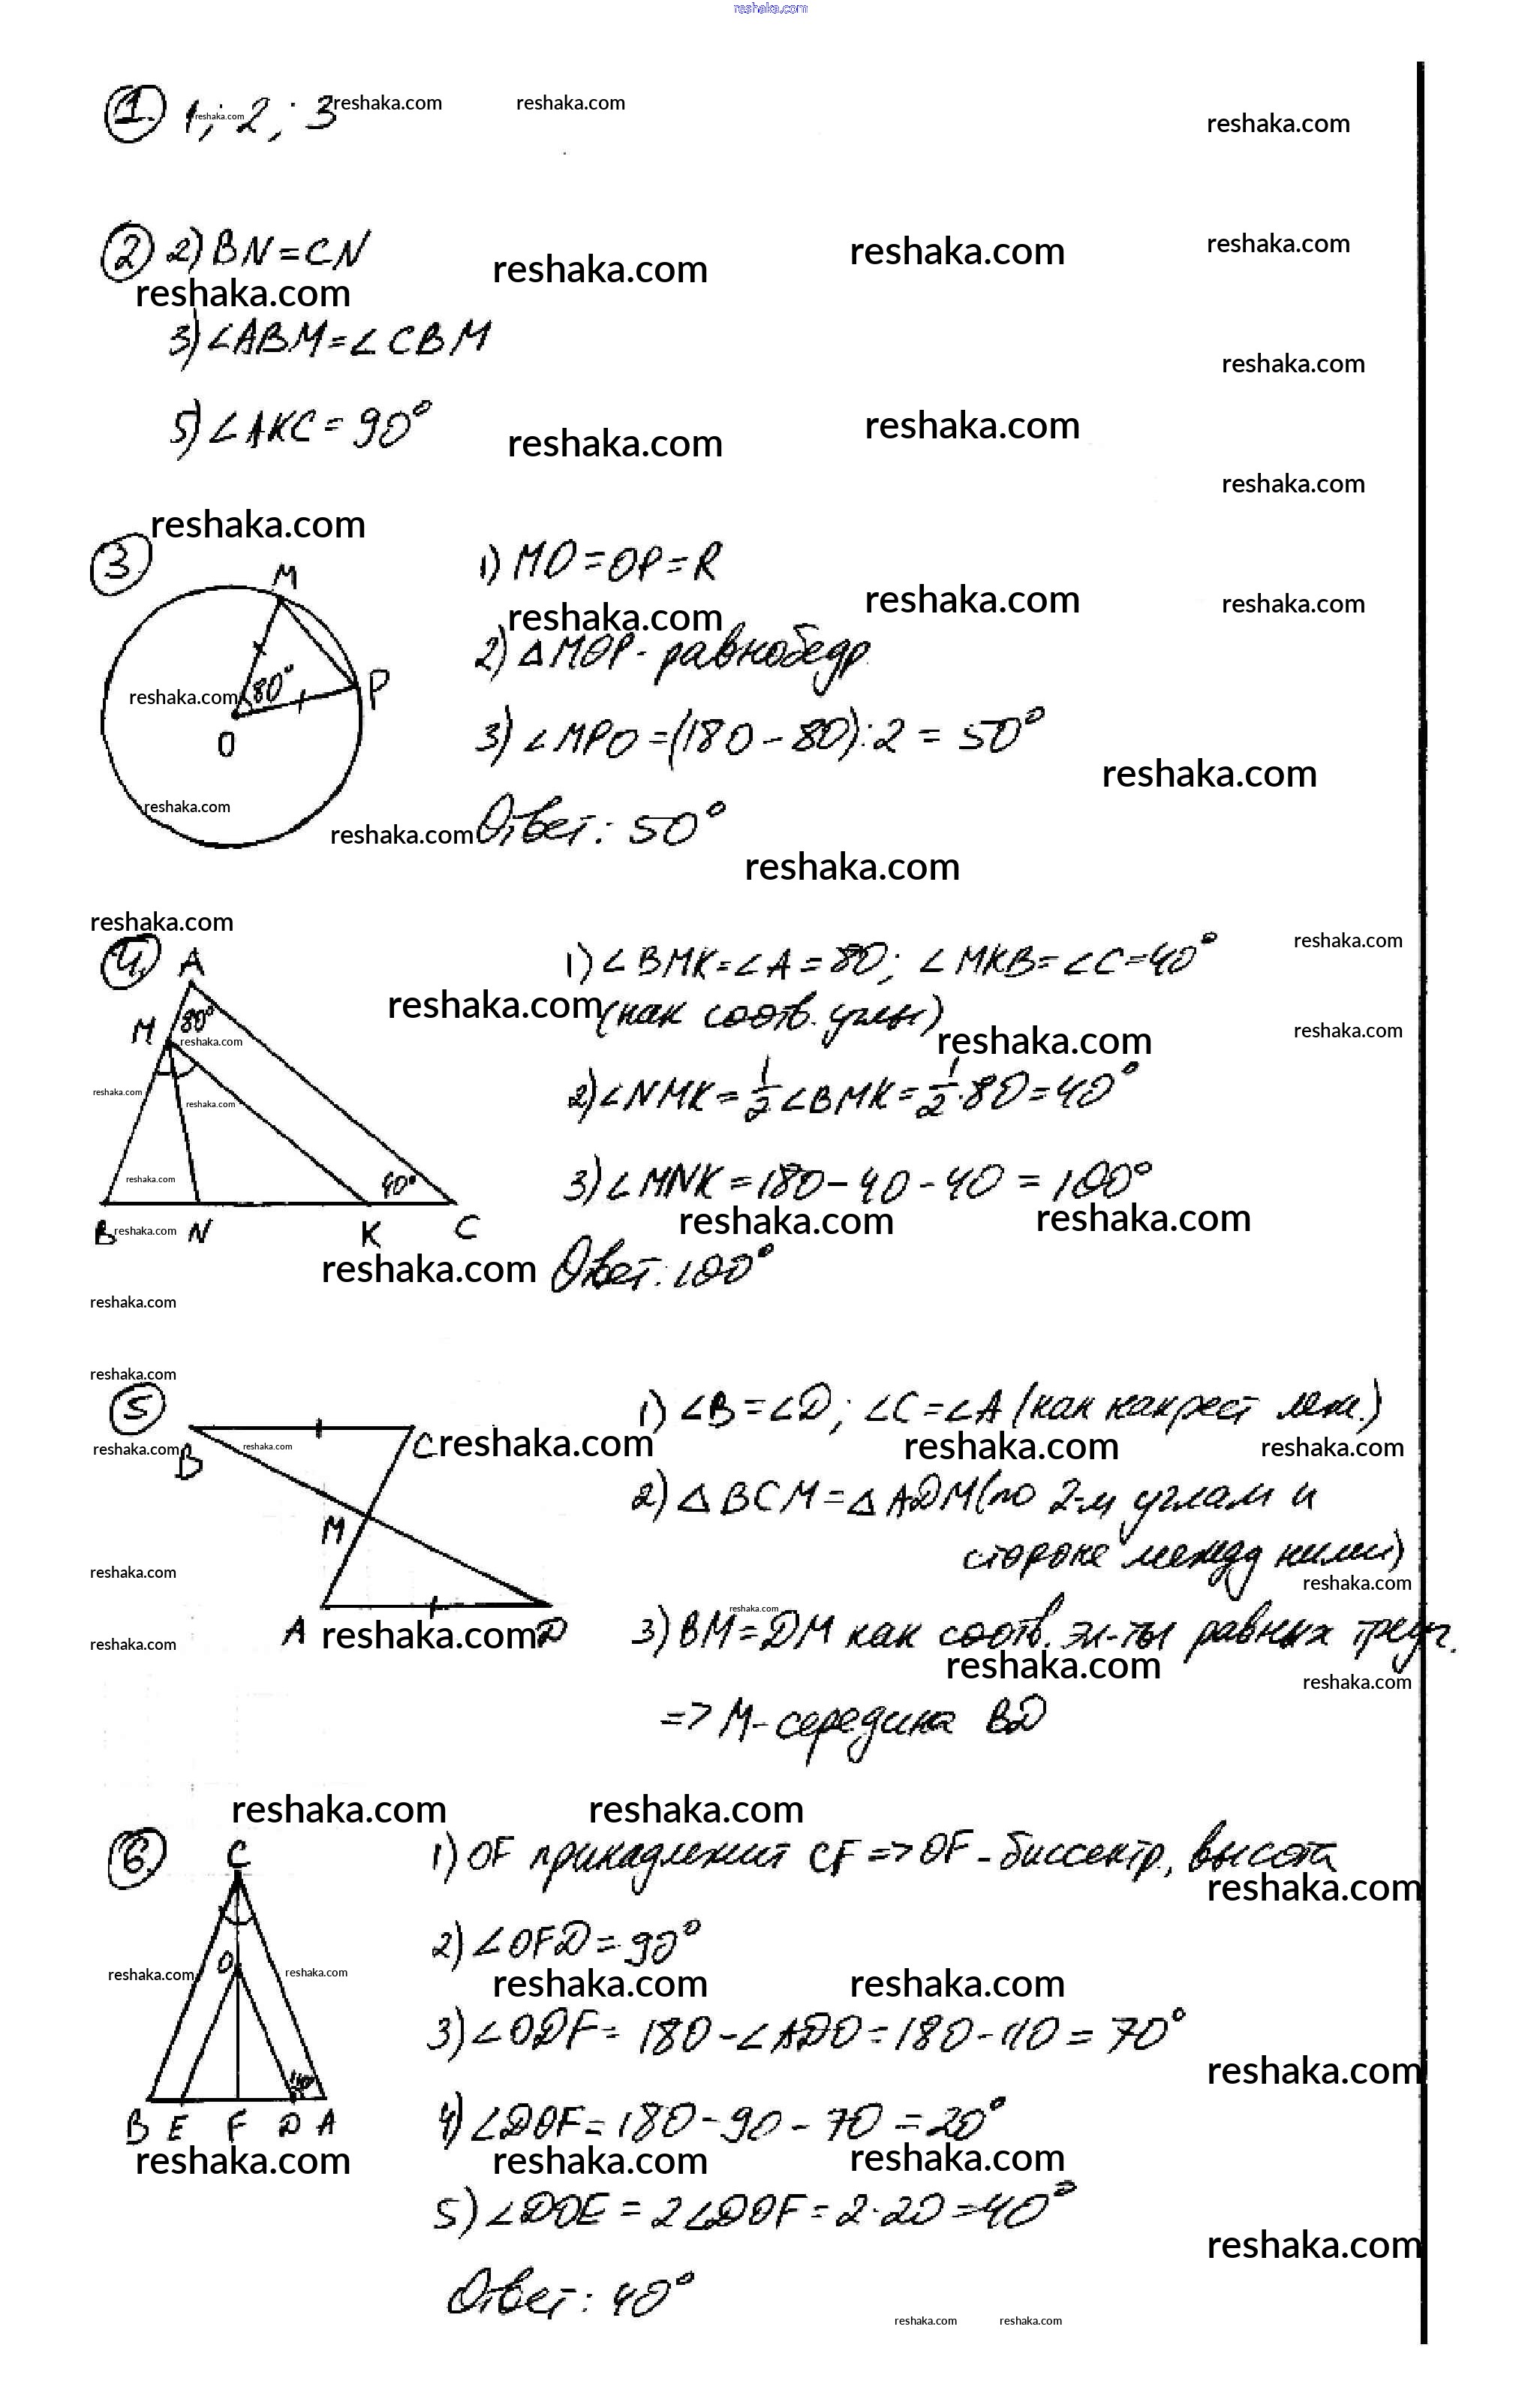 reshaka.com
① 1; 2; 3
② 2) BN = CN
3) ∠ABM = ∠CBM
5) ∠AKC = 90°
③
M
80°
P
O
1) MO = OP = R
2) △MOP - равнобедр.
3) ∠MPO = (180 - 80) : 2 = 50°
Ответ: 50°
④
A
M 80°
40°
B N K C
1) ∠BMK = ∠A = 80; ∠MKB = ∠C = 40°
(как соотв. углы)
2) ∠NMK = 1/2 ∠BMK = 1/2 · 80 = 40°
3) ∠MNK = 180 - 40 - 40 = 100°
Ответ: 100°
⑤
B C
M
A D
1) ∠B = ∠D; ∠C = ∠A (как накрест леж.)
2) △BCM = △ADM (по 2-м углам и
стороне между ними)
3) BM = DM как соотв. эл-ты равных треуг.
=> M - середина BD
⑥
C
O
110°
B E F D A
1) OF принадлежит CF => OF - биссектр., высота
2) ∠OFD = 90°
3) ∠ODF = 180 - ∠ADO = 180 - 110 = 70°
4) ∠DOF = 180 - 90 - 70 = 20°
5) ∠DOE = 2∠DOF = 2 · 20 = 40°
Ответ: 40°